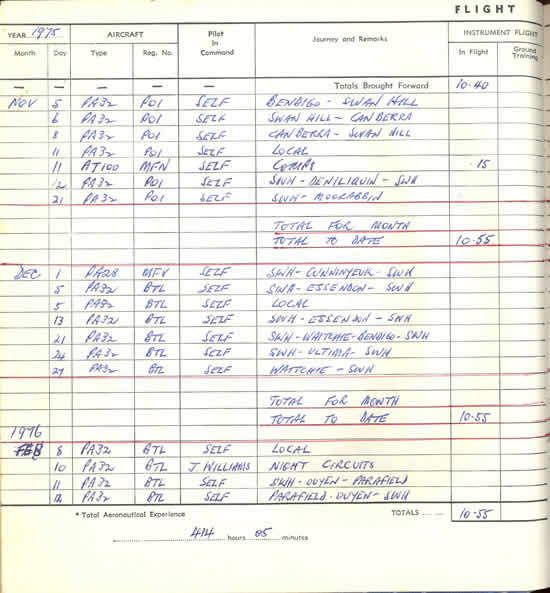 FLIGHT
YEAR 1975 AIRCRAFT Pilot In Command Journey and Remarks INSTRUMENT FLIGHT
Month Day Type Reg. No. In Flight Ground Training
— — — — — Totals Brought Forward 10-40
NOV 5 PA32 POI SELF BENDIGO - SWAN HILL
6 PA32 POI SELF SWAN HILL - CANBERRA
8 PA32 POI SELF CANBERRA - SWAN HILL
11 PA32 POI SELF LOCAL
11 AT100 MFN SELF .15
12 PA32 POI SELF SWH - DENILIQUIN - SWH
21 PA32 POI SELF SWH - MOORABBIN
TOTAL FOR MONTH
TOTAL TO DATE 10-55
DEC 1 PA28 MFV SELF SWH - CUNNINYEUK - SWH
5 PA32 BTL SELF SWH - ESSENDON - SWH
5 PA32 BTL SELF LOCAL
13 PA32 BTL SELF SWH - ESSENDON - SWH
21 PA32 BTL SELF SWH - WAITCHIE - BENDIGO - SWH
24 PA32 BTL SELF SWH - ULTIMA - SWH
27 PA32 BTL SELF WAITCHIE - SWH
TOTAL FOR MONTH
TOTAL TO DATE 10-55
1976
FEB 8 PA32 BTL SELF LOCAL
10 PA32 BTL J. WILLIAMS NIGHT CIRCUITS
11 PA32 BTL SELF SWH - OUYEN - PARAFIELD
12 PA32 BTL SELF PARAFIELD - OUYEN - SWH
* Total Aeronautical Experience TOTALS ...... 10-55
414 hours 05 minutes